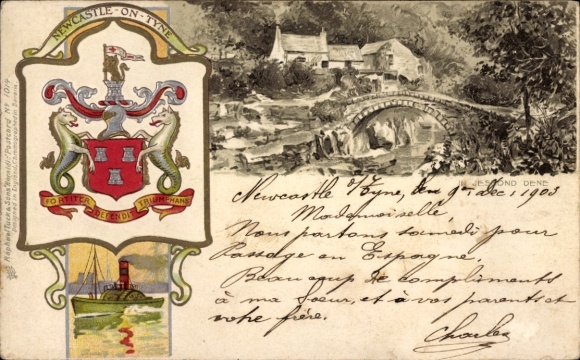 NEWCASTLE-ON-TYNE
FORTITER DEFENDIT TRIUM-HANS
Raphael Tuck & Sons' "Heraldic" Postcard No 1014
JESMOND DENE
Newcastle s/Tyne, den 9ten Dec, 1903
Mademoiselle,
Nous partons samedi pour
Passage en Espagne.
Beaucoup de compliments
à ma soeur, et à vos parents et
votre frère.
Charles